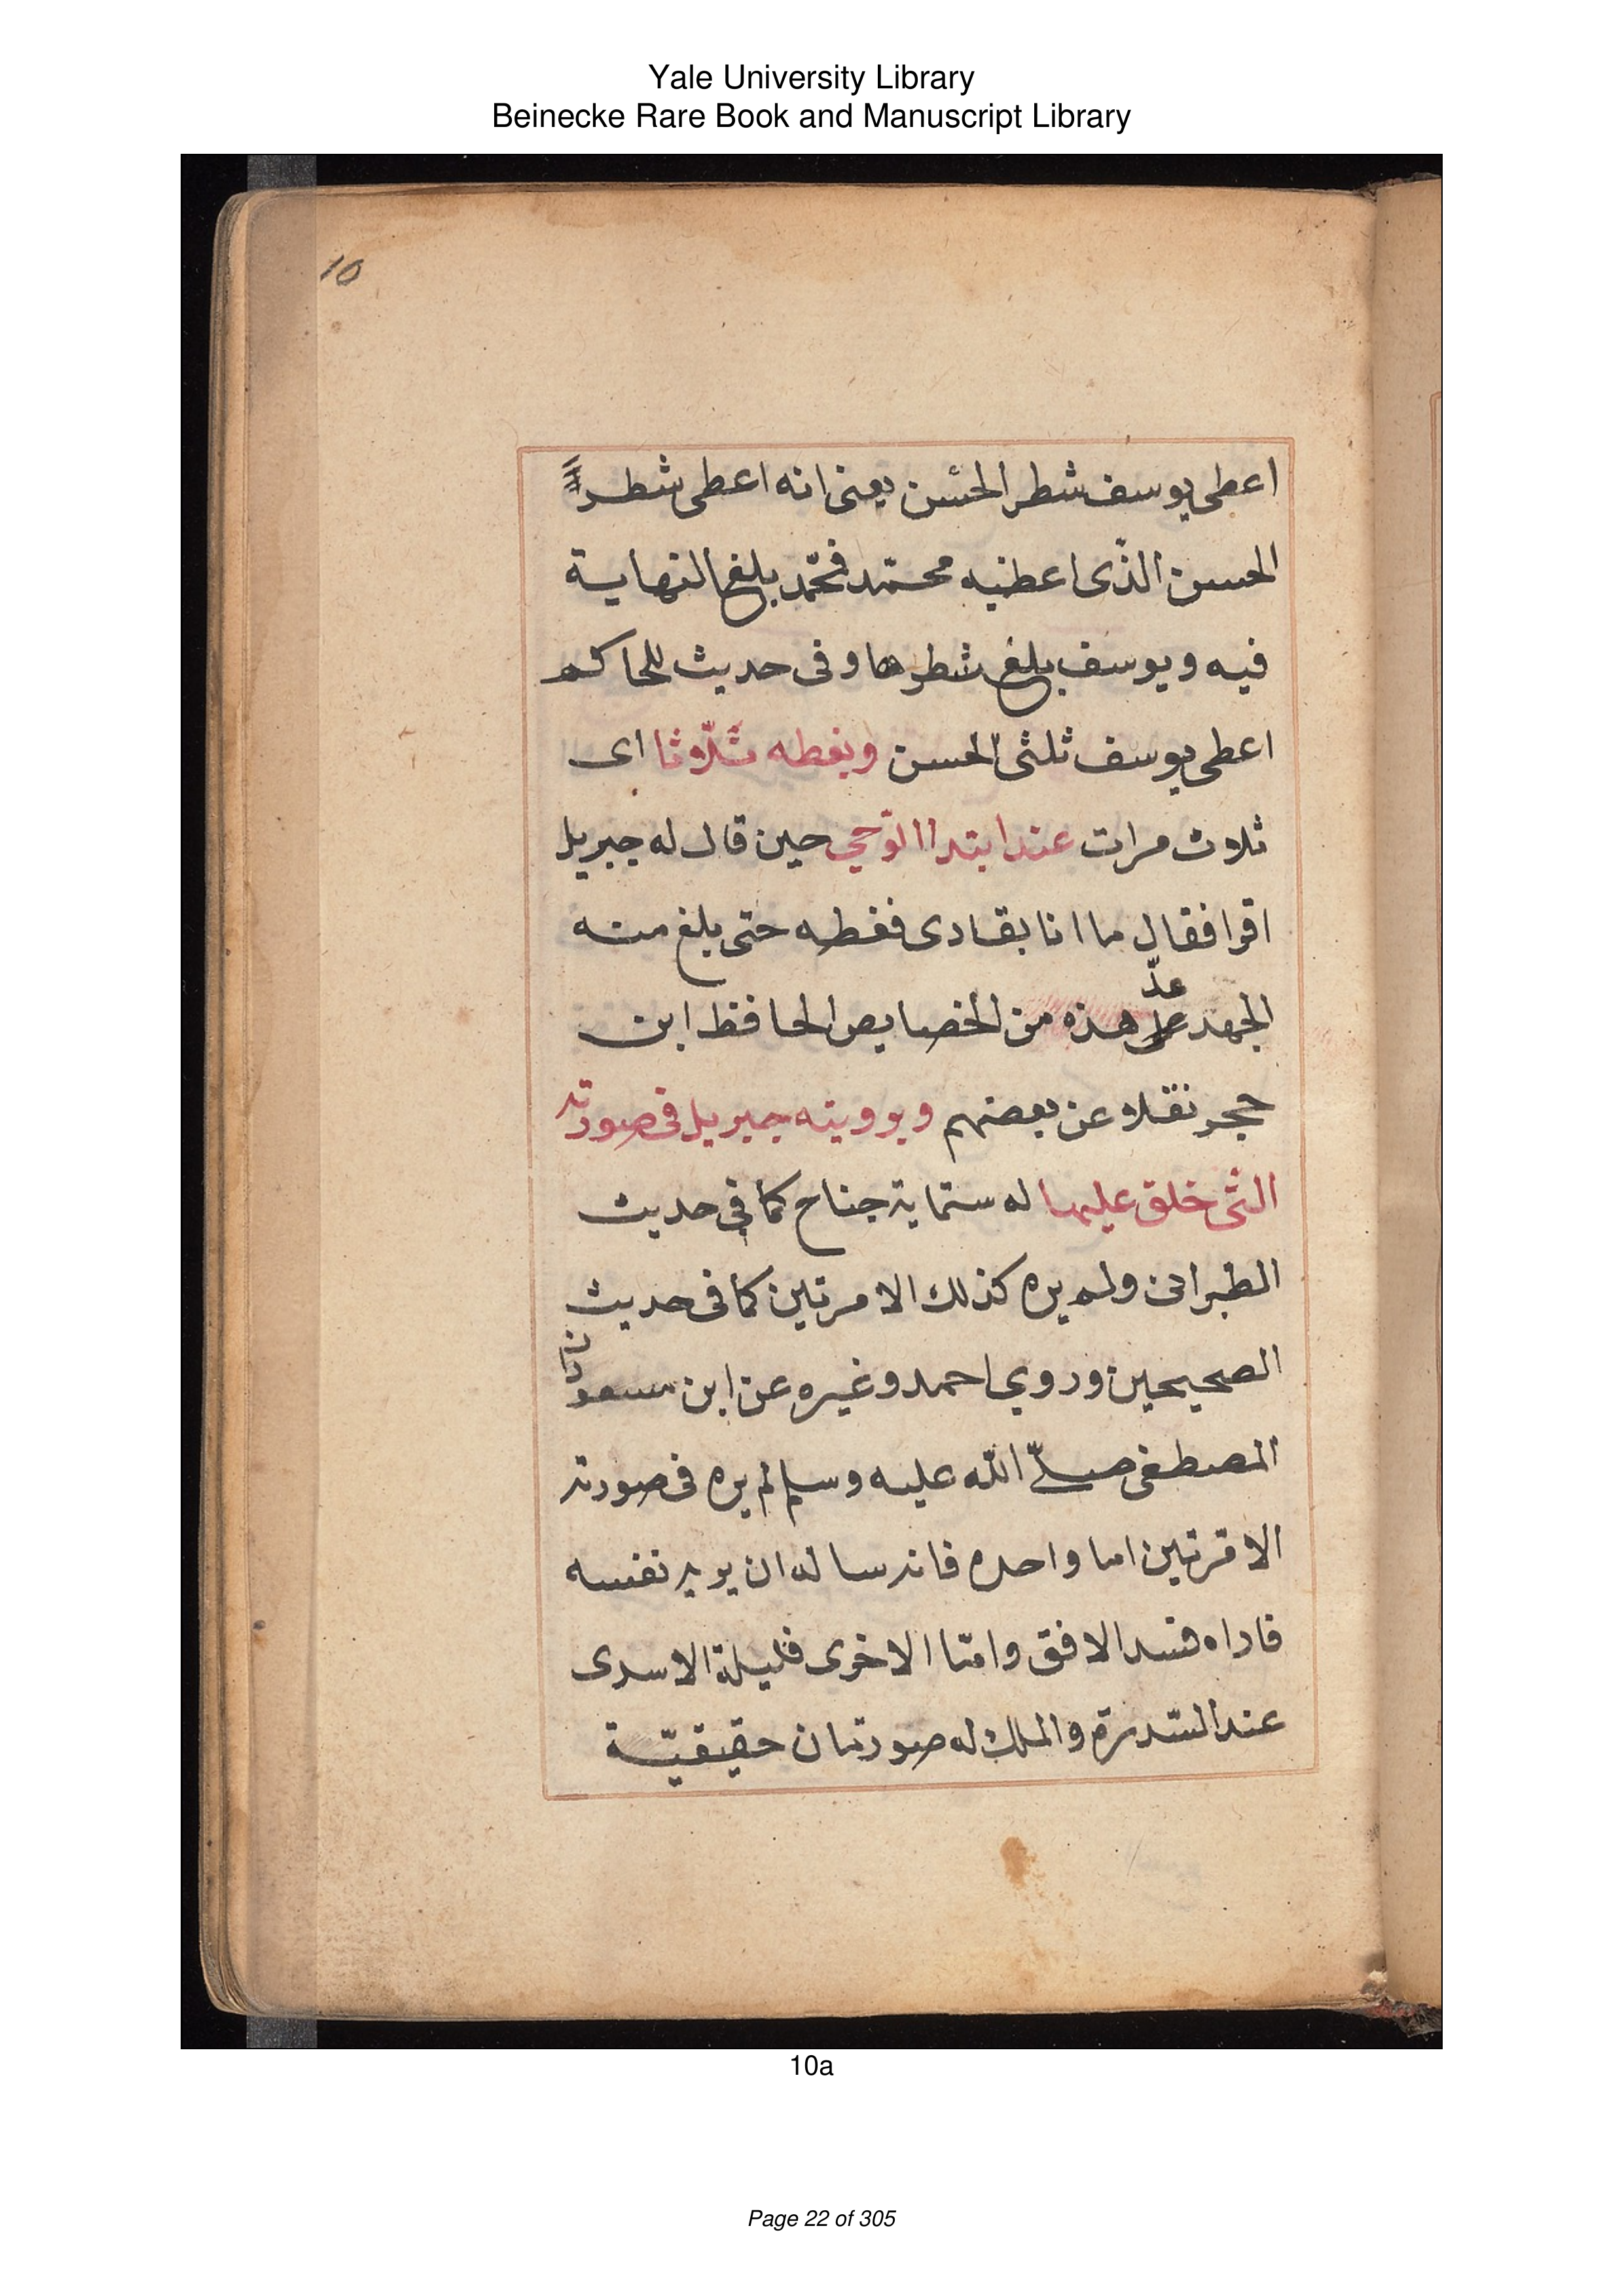 Yale University Library
Beinecke Rare Book and Manuscript Library
10
اعطى يوسف شطر الحسن يعنى انه اعطى شطر
الحسن الذّى اعطيه محمّد فمحمّد بلغ النهاية
فيه ويوسف بلغ شطرها وفى حديث للحاكم
اعطى يوسف ثلثى الحسن وبغطه ثلاثا اى
ثلاث مرات عند ابتدا الوّحي حين قال له جبريل
اقرا فقال ما انا بقارى فغطه حتى بلغ منه
عدّ
الجهد هذه من الخصايص الحافظ ابن
حجر نقلا عن بعضهم وبرويته جبريل فى صورته
التى خلق عليها له ستماية جناح كما في حديث
الطبرانى ولم يره كذلك الا مرتين كما فى حديث
الصحيحين وروي احمد وغيره عن ابن مسعود ان
المصطفى صلّى الله عليه وسلم لم يره فى صورته
الا مرتين اما واحده فانه ساله ان يريه نفسه
فاراه فسد الافق وامّا الاخرى فليلة الاسرى
عند السّدرة والملك له صورتان حقيقيّة
10a
Page 22 of 305